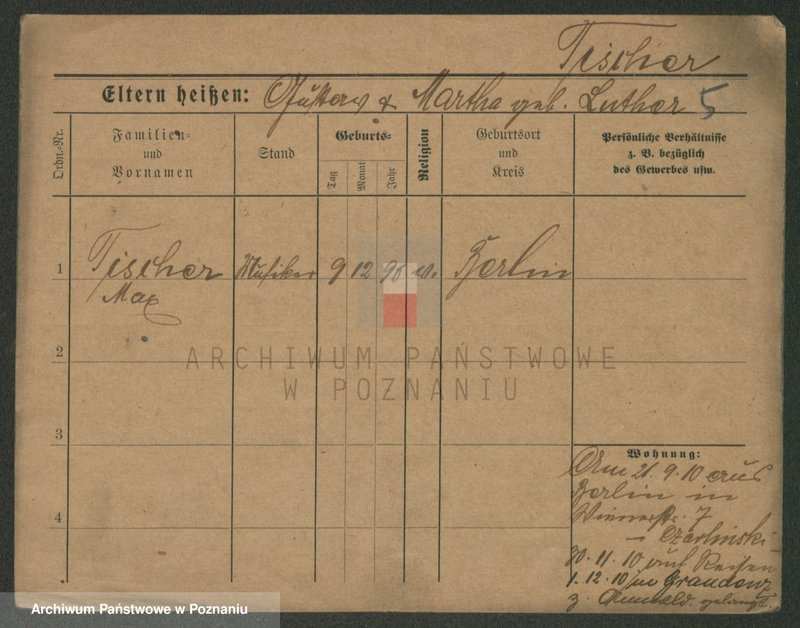 Tischer
Eltern heißen: Gustav & Martha geb. Luther 5
Ordn.-Nr.
Familien- und Vornamen
Stand
Geburts-
Tag
Monat
Jahr
Religion
Geburtsort und Kreis
Persönliche Verhältnisse
z. B. bezüglich
des Gewerbes usw.
1 Tischer Musiker 9 12 90 ev. Berlin
Max
ARCHIWUM PAŃSTWOWE
W POZNANIU
2
3
4
Wohnung:
Am 21. 9. 10 aus
Berlin in
7
Czarlinski
30. 11. 10 auf Reisen
1. 12. 10 in Graudenz
z.
Archiwum Państwowe w Poznaniu